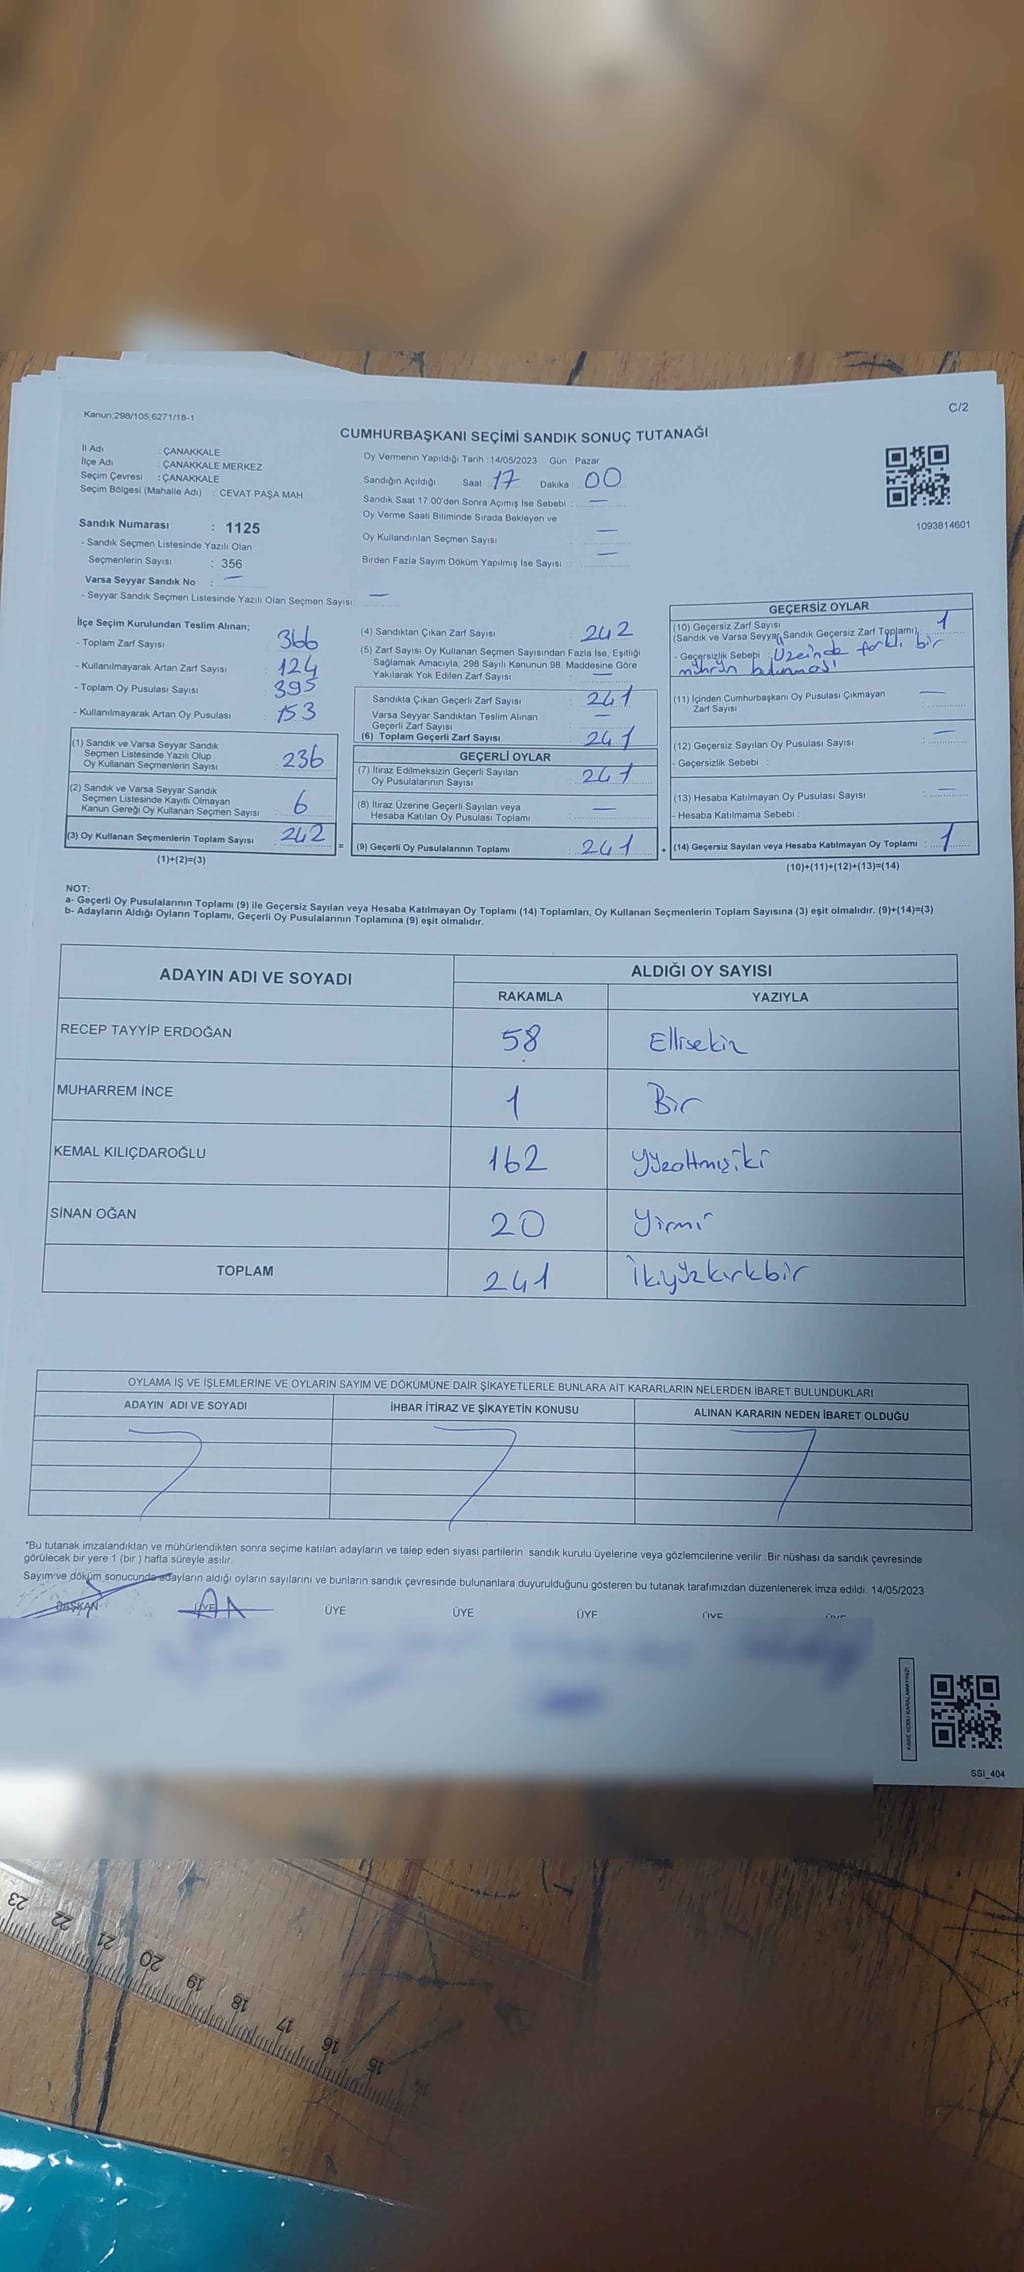 Kanun:298/105,6271/18-1
C/2
CUMHURBAŞKANI SEÇİMİ SANDIK SONUÇ TUTANAĞI
İl Adı : ÇANAKKALE
İlçe Adı : ÇANAKKALE MERKEZ
Seçim Çevresi : ÇANAKKALE
Seçim Bölgesi (Mahalle Adı) : CEVAT PAŞA MAH
Sandık Numarası : 1125
- Sandık Seçmen Listesinde Yazılı Olan
Seçmenlerin Sayısı : 356
Varsa Seyyar Sandık No : —
- Seyyar Sandık Seçmen Listesinde Yazılı Olan Seçmen Sayısı: —
Oy Vermenin Yapıldığı Tarih : 14/05/2023 Gün : Pazar
Sandığın Açıldığı Saat : 17 Dakika : 00
Sandık Saat 17:00'den Sonra Açımış İse Sebebi : —
Oy Verme Saati Bitiminde Sırada Bekleyen ve
Oy Kullandırılan Seçmen Sayısı : —
Birden Fazla Sayım Döküm Yapılmış İse Sayısı : —
1093814601
İlçe Seçim Kurulundan Teslim Alınan;
- Toplam Zarf Sayısı : 366
- Kullanılmayarak Artan Zarf Sayısı : 124
- Toplam Oy Pusulası Sayısı : 395
- Kullanılmayarak Artan Oy Pusulası : 153
(1) Sandık ve Varsa Seyyar Sandık
Seçmen Listesinde Yazılı Olup
Oy Kullanan Seçmenlerin Sayısı : 236
(2) Sandık ve Varsa Seyyar Sandık
Seçmen Listesinde Kayıtlı Olmayan
Kanun Gereği Oy Kullanan Seçmen Sayısı : 6
(3) Oy Kullanan Seçmenlerin Toplam Sayısı : 242
(1)+(2)=(3)
=
(4) Sandıktan Çıkan Zarf Sayısı : 242
(5) Zarf Sayısı Oy Kullanan Seçmen Sayısından Fazla İse, Eşitliği
Sağlamak Amacıyla, 298 Sayılı Kanunun 98. Maddesine Göre
Yakılarak Yok Edilen Zarf Sayısı : —
Sandıkta Çıkan Geçerli Zarf Sayısı : 241
Varsa Seyyar Sandıktan Teslim Alınan
Geçerli Zarf Sayısı : —
(6) Toplam Geçerli Zarf Sayısı : 241
GEÇERLİ OYLAR
(7) İtiraz Edilmeksizin Geçerli Sayılan
Oy Pusulalarının Sayısı : 241
(8) İtiraz Üzerine Geçerli Sayılan veya
Hesaba Katılan Oy Pusulası Toplamı : —
(9) Geçerli Oy Pusulalarının Toplamı : 241
+
GEÇERSİZ OYLAR
(10) Geçersiz Zarf Sayısı
(Sandık ve Varsa Seyyar Sandık Geçersiz Zarf Toplamı) : 1
- Geçersizlik Sebebi : Üzeinde farklı bir
mührün bulunması
(11) İçinden Cumhurbaşkanı Oy Pusulası Çıkmayan
Zarf Sayısı : —
(12) Geçersiz Sayılan Oy Pusulası Sayısı : —
- Geçersizlik Sebebi :
(13) Hesaba Katılmayan Oy Pusulası Sayısı : —
- Hesaba Katılmama Sebebi :
(14) Geçersiz Sayılan veya Hesaba Katılmayan Oy Toplamı : 1
(10)+(11)+(12)+(13)=(14)
NOT:
a- Geçerli Oy Pusulalarının Toplamı (9) ile Geçersiz Sayılan veya Hesaba Katılmayan Oy Toplamı (14) Toplamları, Oy Kullanan Seçmenlerin Toplam Sayısına (3) eşit olmalıdır. (9)+(14)=(3)
b- Adayların Aldığı Oyların Toplamı, Geçerli Oy Pusulalarının Toplamına (9) eşit olmalıdır.
ADAYIN ADI VE SOYADI ALDIĞI OY SAYISI
RAKAMLA YAZIYLA
RECEP TAYYİP ERDOĞAN 58 Ellisekiz
MUHARREM İNCE 1 Bir
KEMAL KILIÇDAROĞLU 162 Yüzaltmışiki
SİNAN OĞAN 20 Yirmi
TOPLAM 241 İkiyüzkırkbir
OYLAMA İŞ VE İŞLEMLERİNE VE OYLARIN SAYIM VE DÖKÜMÜNE DAİR ŞİKAYETLERLE BUNLARA AİT KARARLARIN NELERDEN İBARET BULUNDUKLARI
ADAYIN ADI VE SOYADI İHBAR İTİRAZ VE ŞİKAYETİN KONUSU ALINAN KARARIN NEDEN İBARET OLDUĞU
"Bu tutanak imzalandıktan ve mühürlendikten sonra seçime katılan adayların ve talep eden siyasi partilerin sandık kurulu üyelerine veya gözlemcilerine verilir. Bir nüshası da sandık çevresinde
görülecek bir yere 1 (bir) hafta süreyle asılır.
Sayım ve döküm sonucunda adayların aldığı oyların sayılarını ve bunların sandık çevresinde bulunanlara duyurulduğunu gösteren bu tutanak tarafımızdan düzenlenerek imza edildi. 14/05/2023
BAŞKAN ÜYE ÜYE ÜYE ÜYE ÜYE ÜYE
KARE KODU KARALAMAYINIZ!
SSI_404
23 22 21 20 19 18 17 16 15